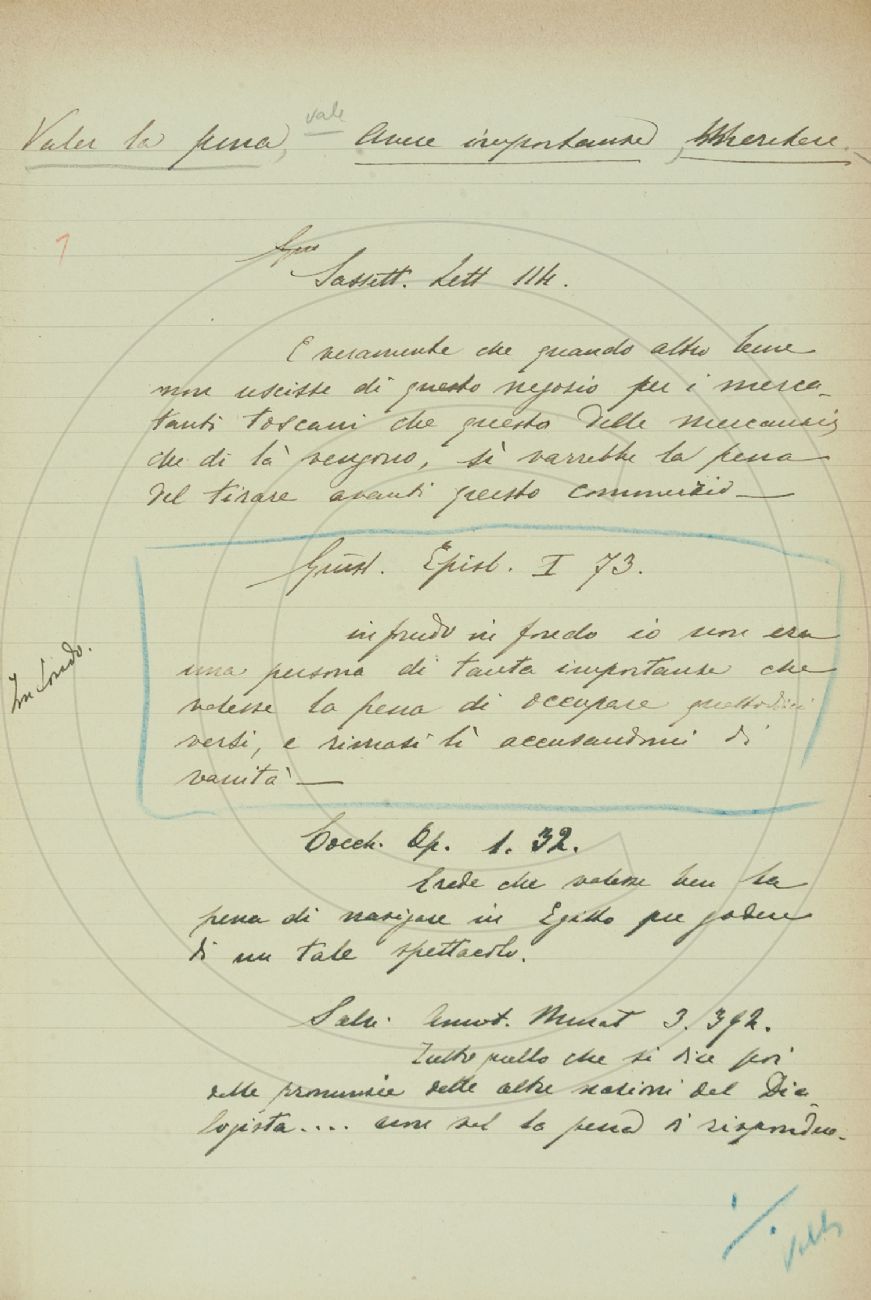 Valer la pena, vale Avere importanza, Meritare.
1
Sassett. Lett 114.
E veramente che quando altro bene
non uscisse di questo negozio per i merca-
tanti toscani che questo delle mercanzie
che di là vengono, sì varrebbe la pena
del tirare avanti questo commercio —
Giust. Epist. I 73.
In fondo.
in fondo in fondo io non era
una persona di tanta importanza che
valesse la pena di occupare quattordici
versi, e rimasi lì accusandomi di
vanità —
Cocch. Op. 1. 32.
Crede che valesse ben la
pena di navigare in Egitto per godere
di un tale spettacolo.
Salv. Annot. Murat 3. 392.
Tutto quello che si dice poi
delle pronunzie delle altre nazioni del Dia-
logista.... non val la pena di rispondere.